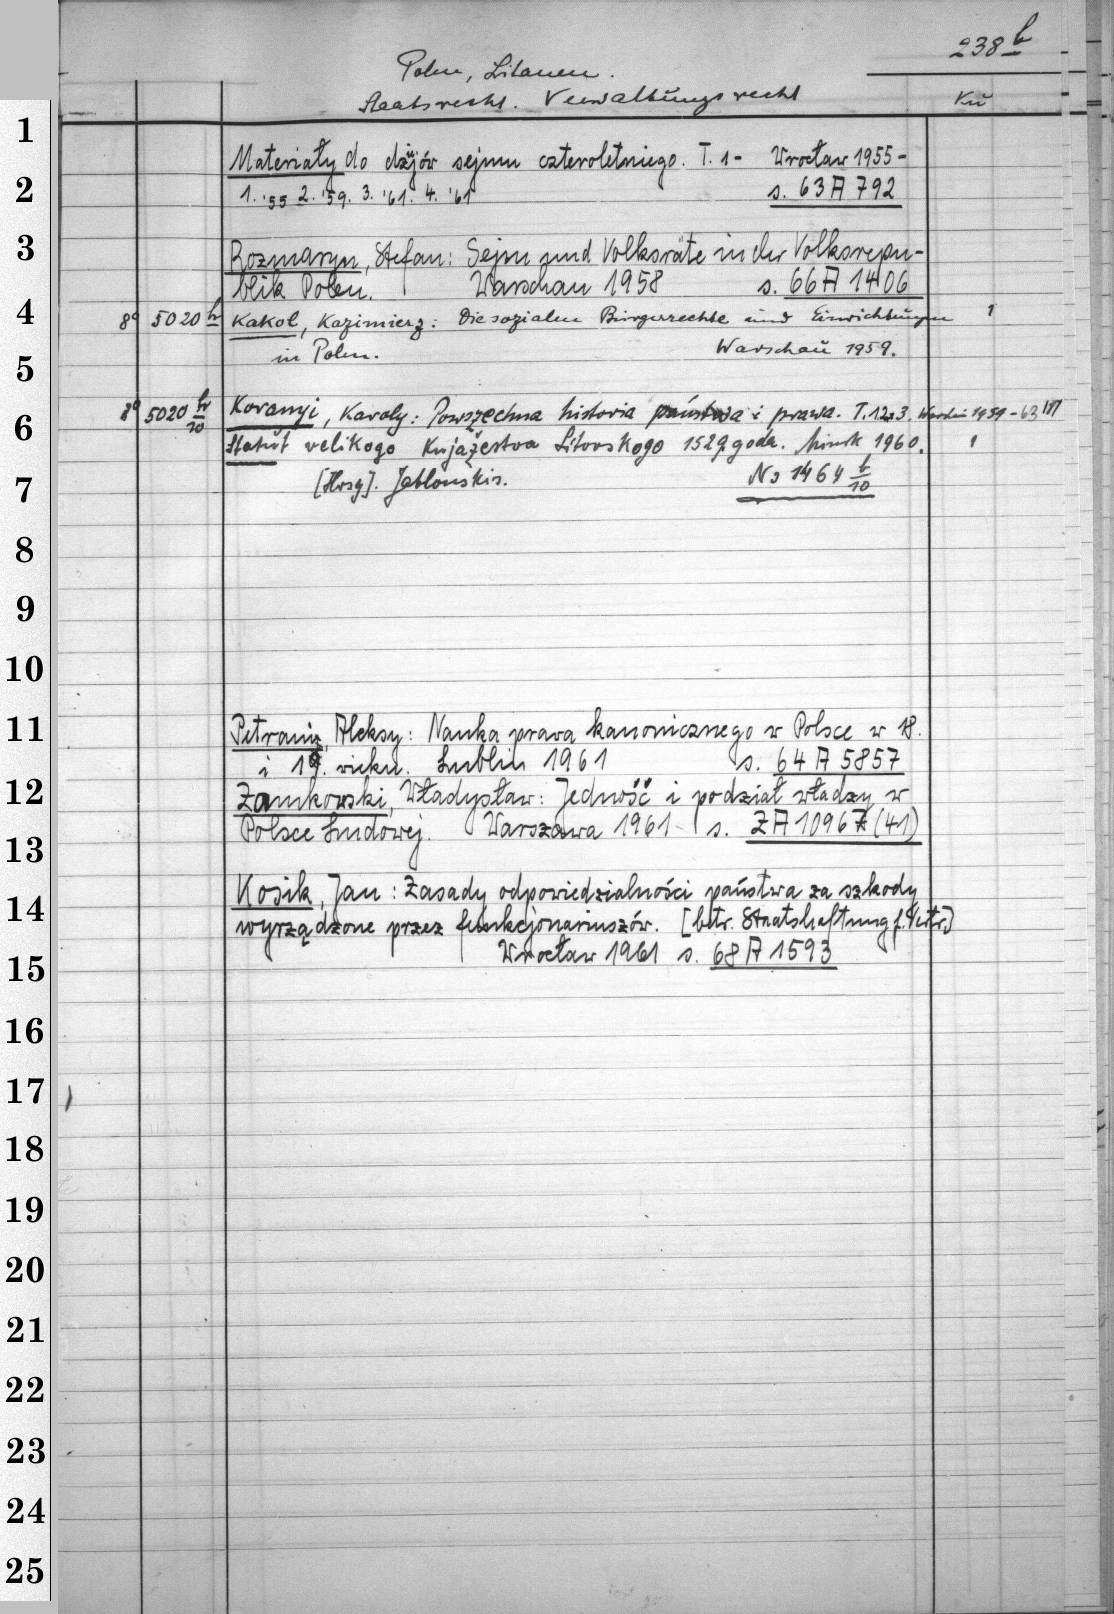 238 b
Polen, Litauen.
Staatsrecht. Verwaltungsrecht
Kü
1
Materiały do dziejów sejmu czteroletniego. T. 1- Wrocław 1955-
2
1. '55 2. '59. 3. '61. 4. '61 s. 63 A 792
3
Rozmaryn, Stefan: Sejm und Volksräte in der Volksrepu-
blik Polen. Warschau 1958 s. 66 A 1406
4
8° 5020 h Kakol, Kazimierz: Die sozialen Bürgerrechte und Einrichtungen 1
5
in Polen. Warschau 1959.
8° 5020 h/10 Koranyi, Karoly: Powszechna historia państwa i prawa. T. 1.2.3. 1959-63
6
Statut velikogo Knjažestva Litovskogo 1529 goda. Minsk 1960. 1
7
[Hrsg]. Jablonskis. No 1464 b/10
8
9
10
11
Petrani, Aleksy: Nauka prawa kanonicznego w Polsce w 18.
i 19. wieku. Lublin 1961 s. 64 A 5857
12
Zamkowski, Władysław: Jedność i podział władzy w
Polsce Ludowej. Warszawa 1961 s. ZA 10967 (41)
13
Kosik, Jan: Zasady odpowiedzialności państwa za szkody
14
wyrządzone przez funkcjonariuszów. [betr. Staatshaftung f.
15
Wrocław 1961 s. 68 A 1593
16
17
18
19
20
21
22
23
24
25